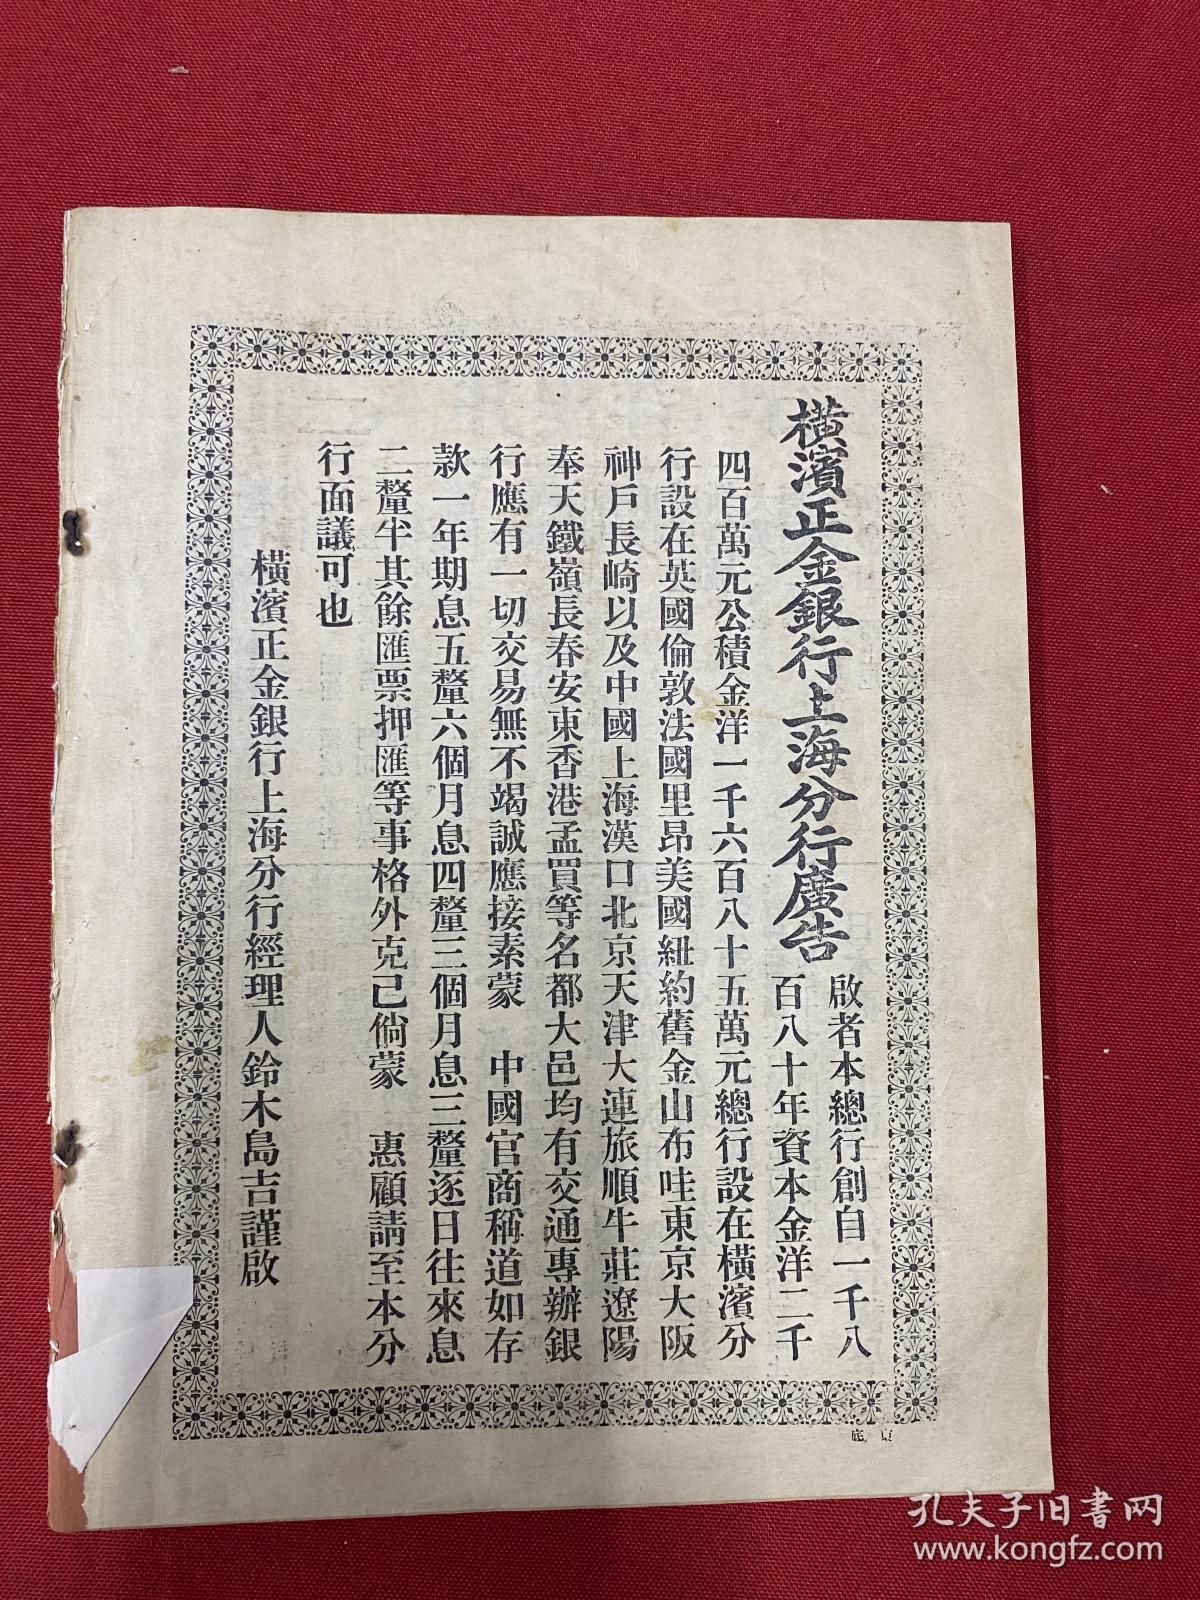 橫濱正金銀行上海分行廣告
啟者本總行創自一千八
百八十年資本金洋二千
四百萬元公積金洋一千六百八十五萬元總行設在橫濱分
行設在英國倫敦法國里昂美國紐約舊金山布哇東京大阪
神戶長崎以及中國上海漢口北京天津大連旅順牛莊遼陽
奉天鐵嶺長春安東香港孟買等名都大邑均有交通專辦銀
行應有一切交易無不竭誠應接素蒙 中國官商稱道如存
款一年期息五釐六個月息四釐三個月息三釐逐日往來息
二釐半其餘匯票押匯等事格外克己倘蒙 惠顧請至本分
行面議可也
橫濱正金銀行上海分行經理人鈴木島吉謹啟
孔夫子旧书网
www.kongfz.com